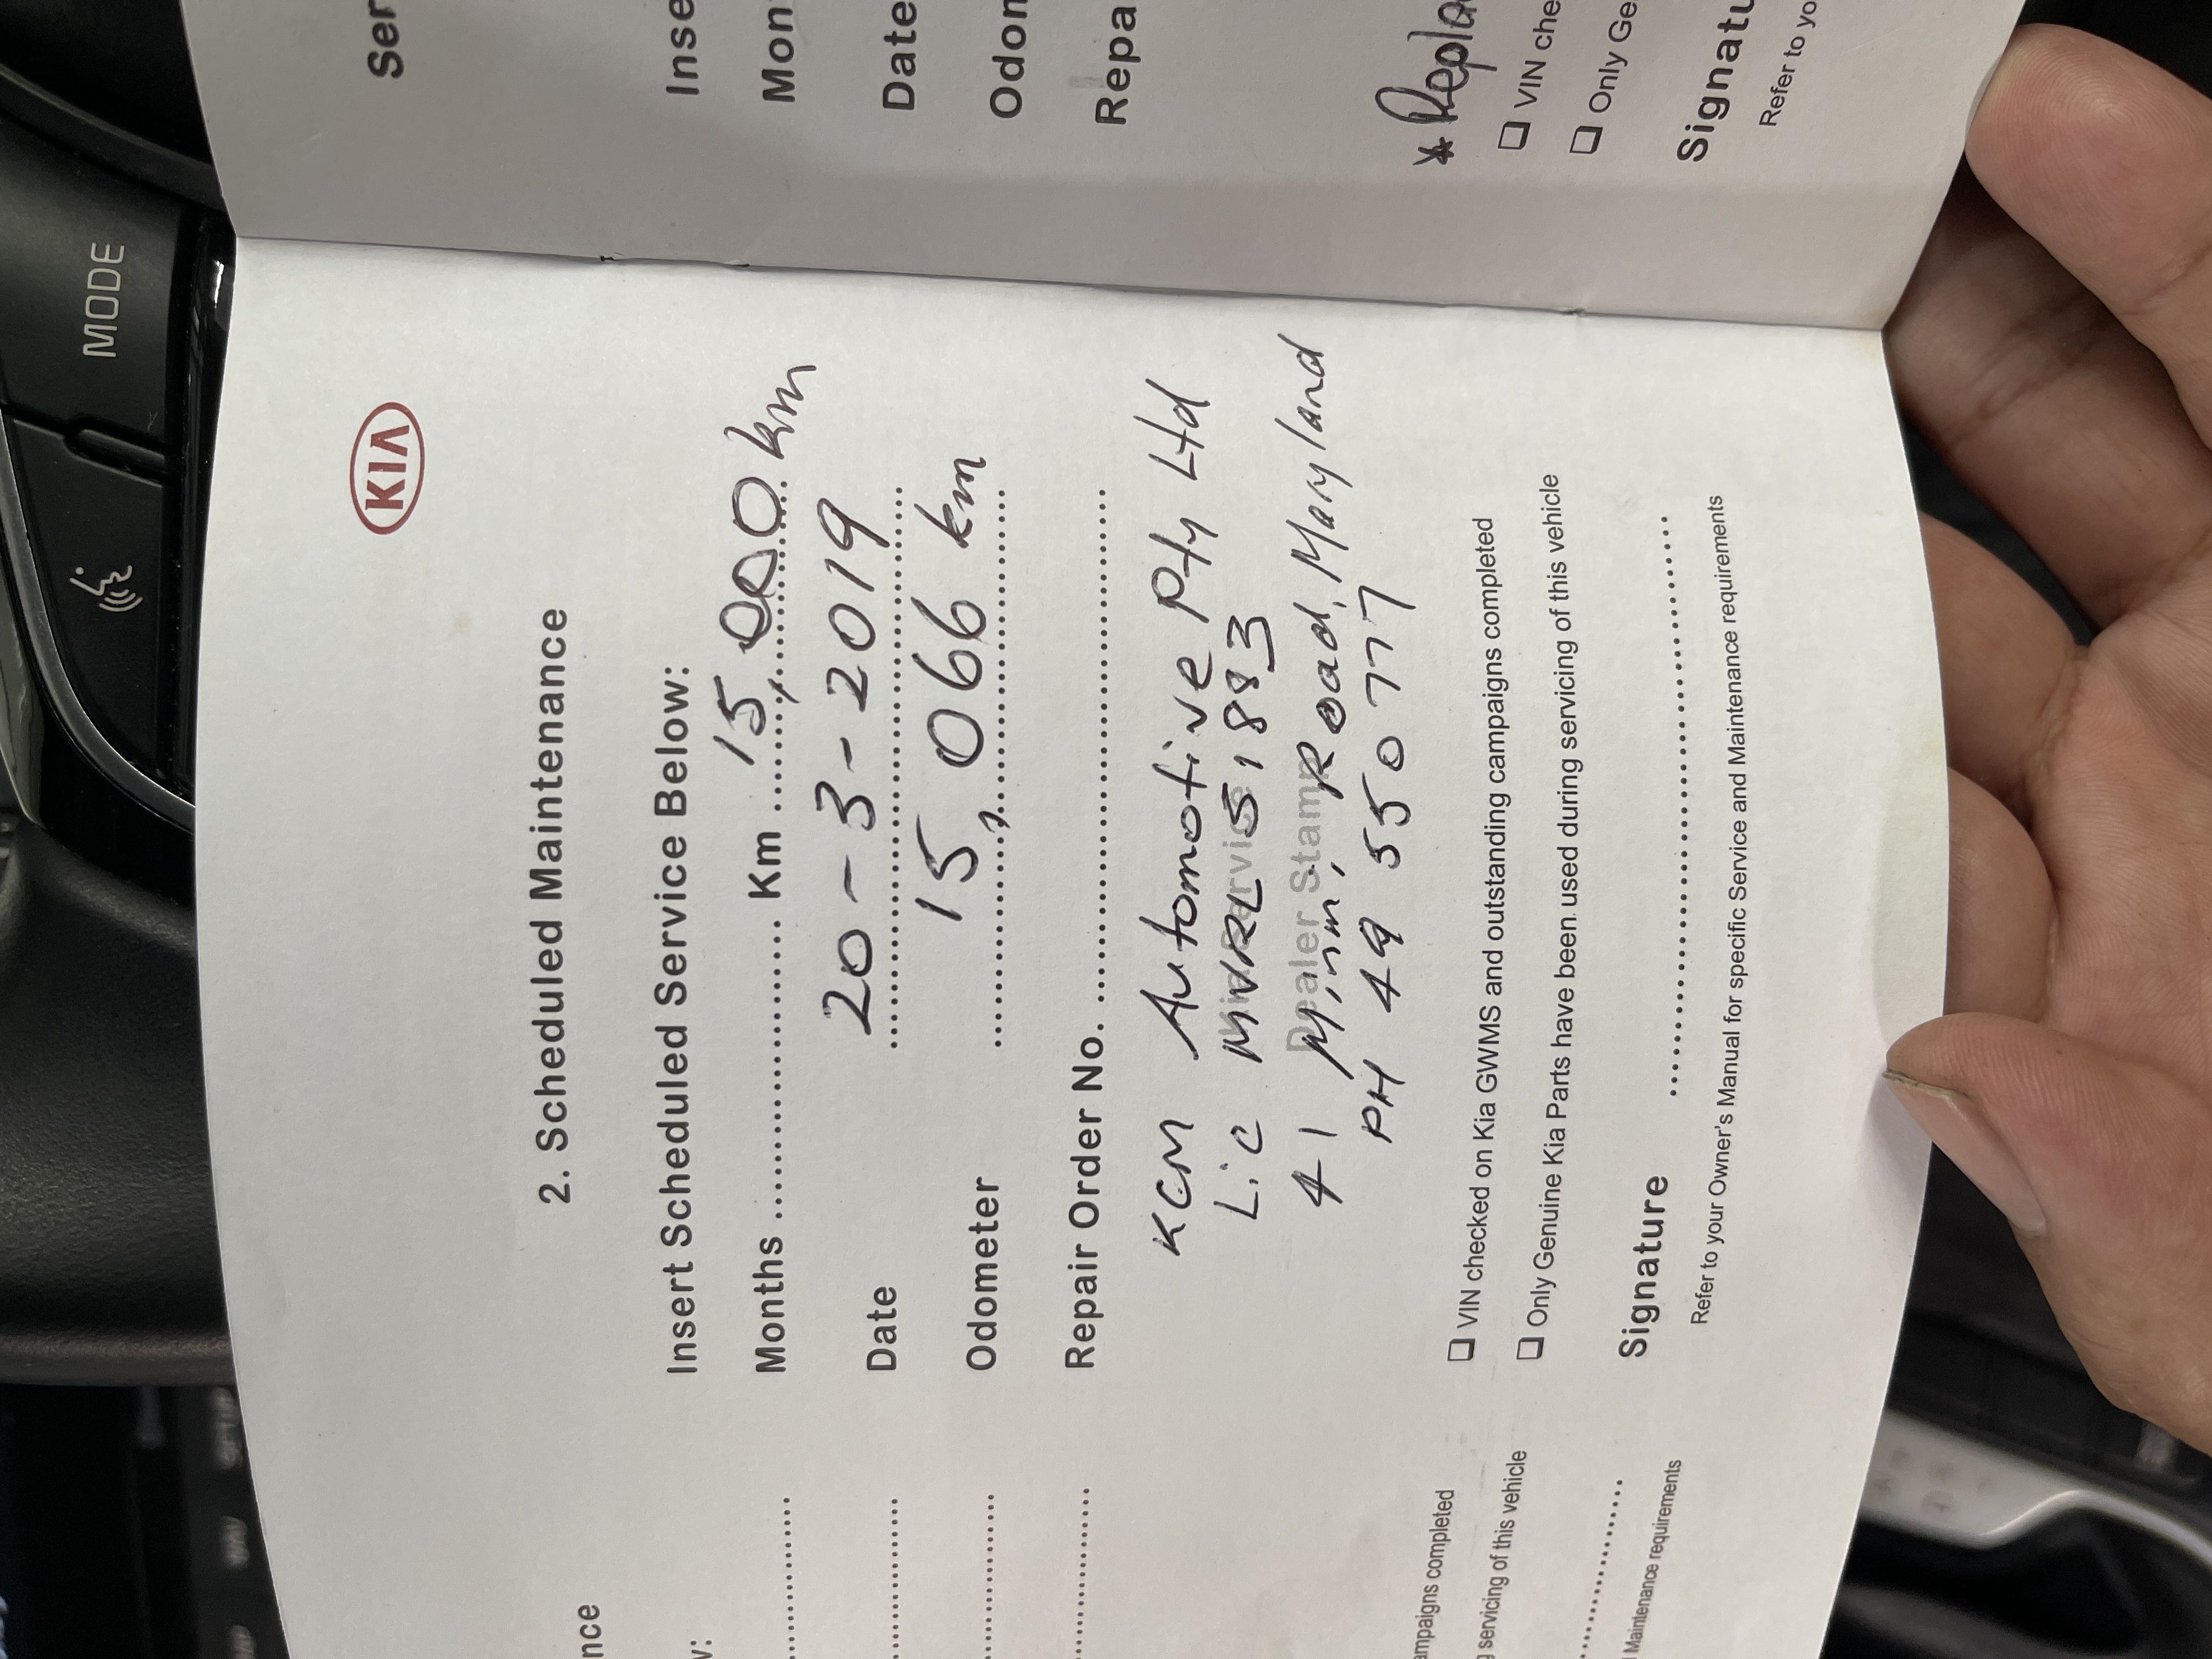 MODE
KIA
2. Scheduled Maintenance
Insert Scheduled Service Below:
Months .......................... Km ..... 15,000 km
Date 20-3-2019
Odometer 15,066 km
Repair Order No. ..........................
KCM Automotive Pty Ltd
Lic MVRL 51883
41 Minmi Road, Maryland
PH 49 550777
Dealer Stamp
☐ VIN checked on Kia GWMS and outstanding campaigns completed
☐ Only Genuine Kia Parts have been used during servicing of this vehicle
Signature ..........................
Refer to your Owner's Manual for specific Service and Maintenance requirements
Ser
Inse
Mon
Date
Odon
Repa
* Repla
☐ VIN che
☐ Only Ge
Signatu
Refer to yo
nce
w:
ampaigns completed
g servicing of this vehicle
Maintenance requirements